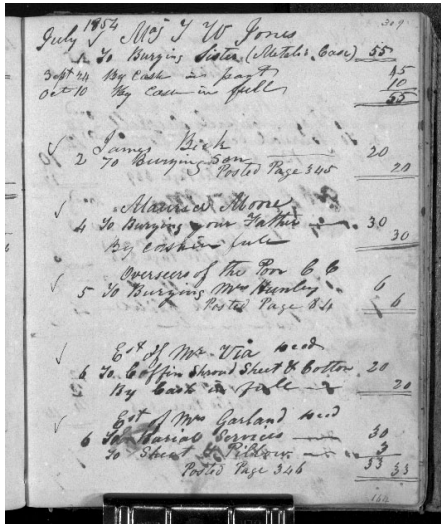 309
July 1854 Mrs J W Jones
1 To Burying Sister (Metalic Case) 55
Sept 24 By Cash in part 45
Oct 10 By Cash in full 10
55
James Bick
2 To Burying Son 20
Posted Page 345 20
Maurice Moore
4 To Burying your Father 30
By cash in full 30
Overseers of the Poor C C
5 To Burying Mrs Hunley 6
Posted Page 84 6
Est of Mr Via decd
6 To Coffin Shroud Sheet & Cotton 20
By Cash in full 20
Est of Mrs Garland decd
6 To Burial Services 30
To Sheet & Pillow 3
Posted Page 346 33 33